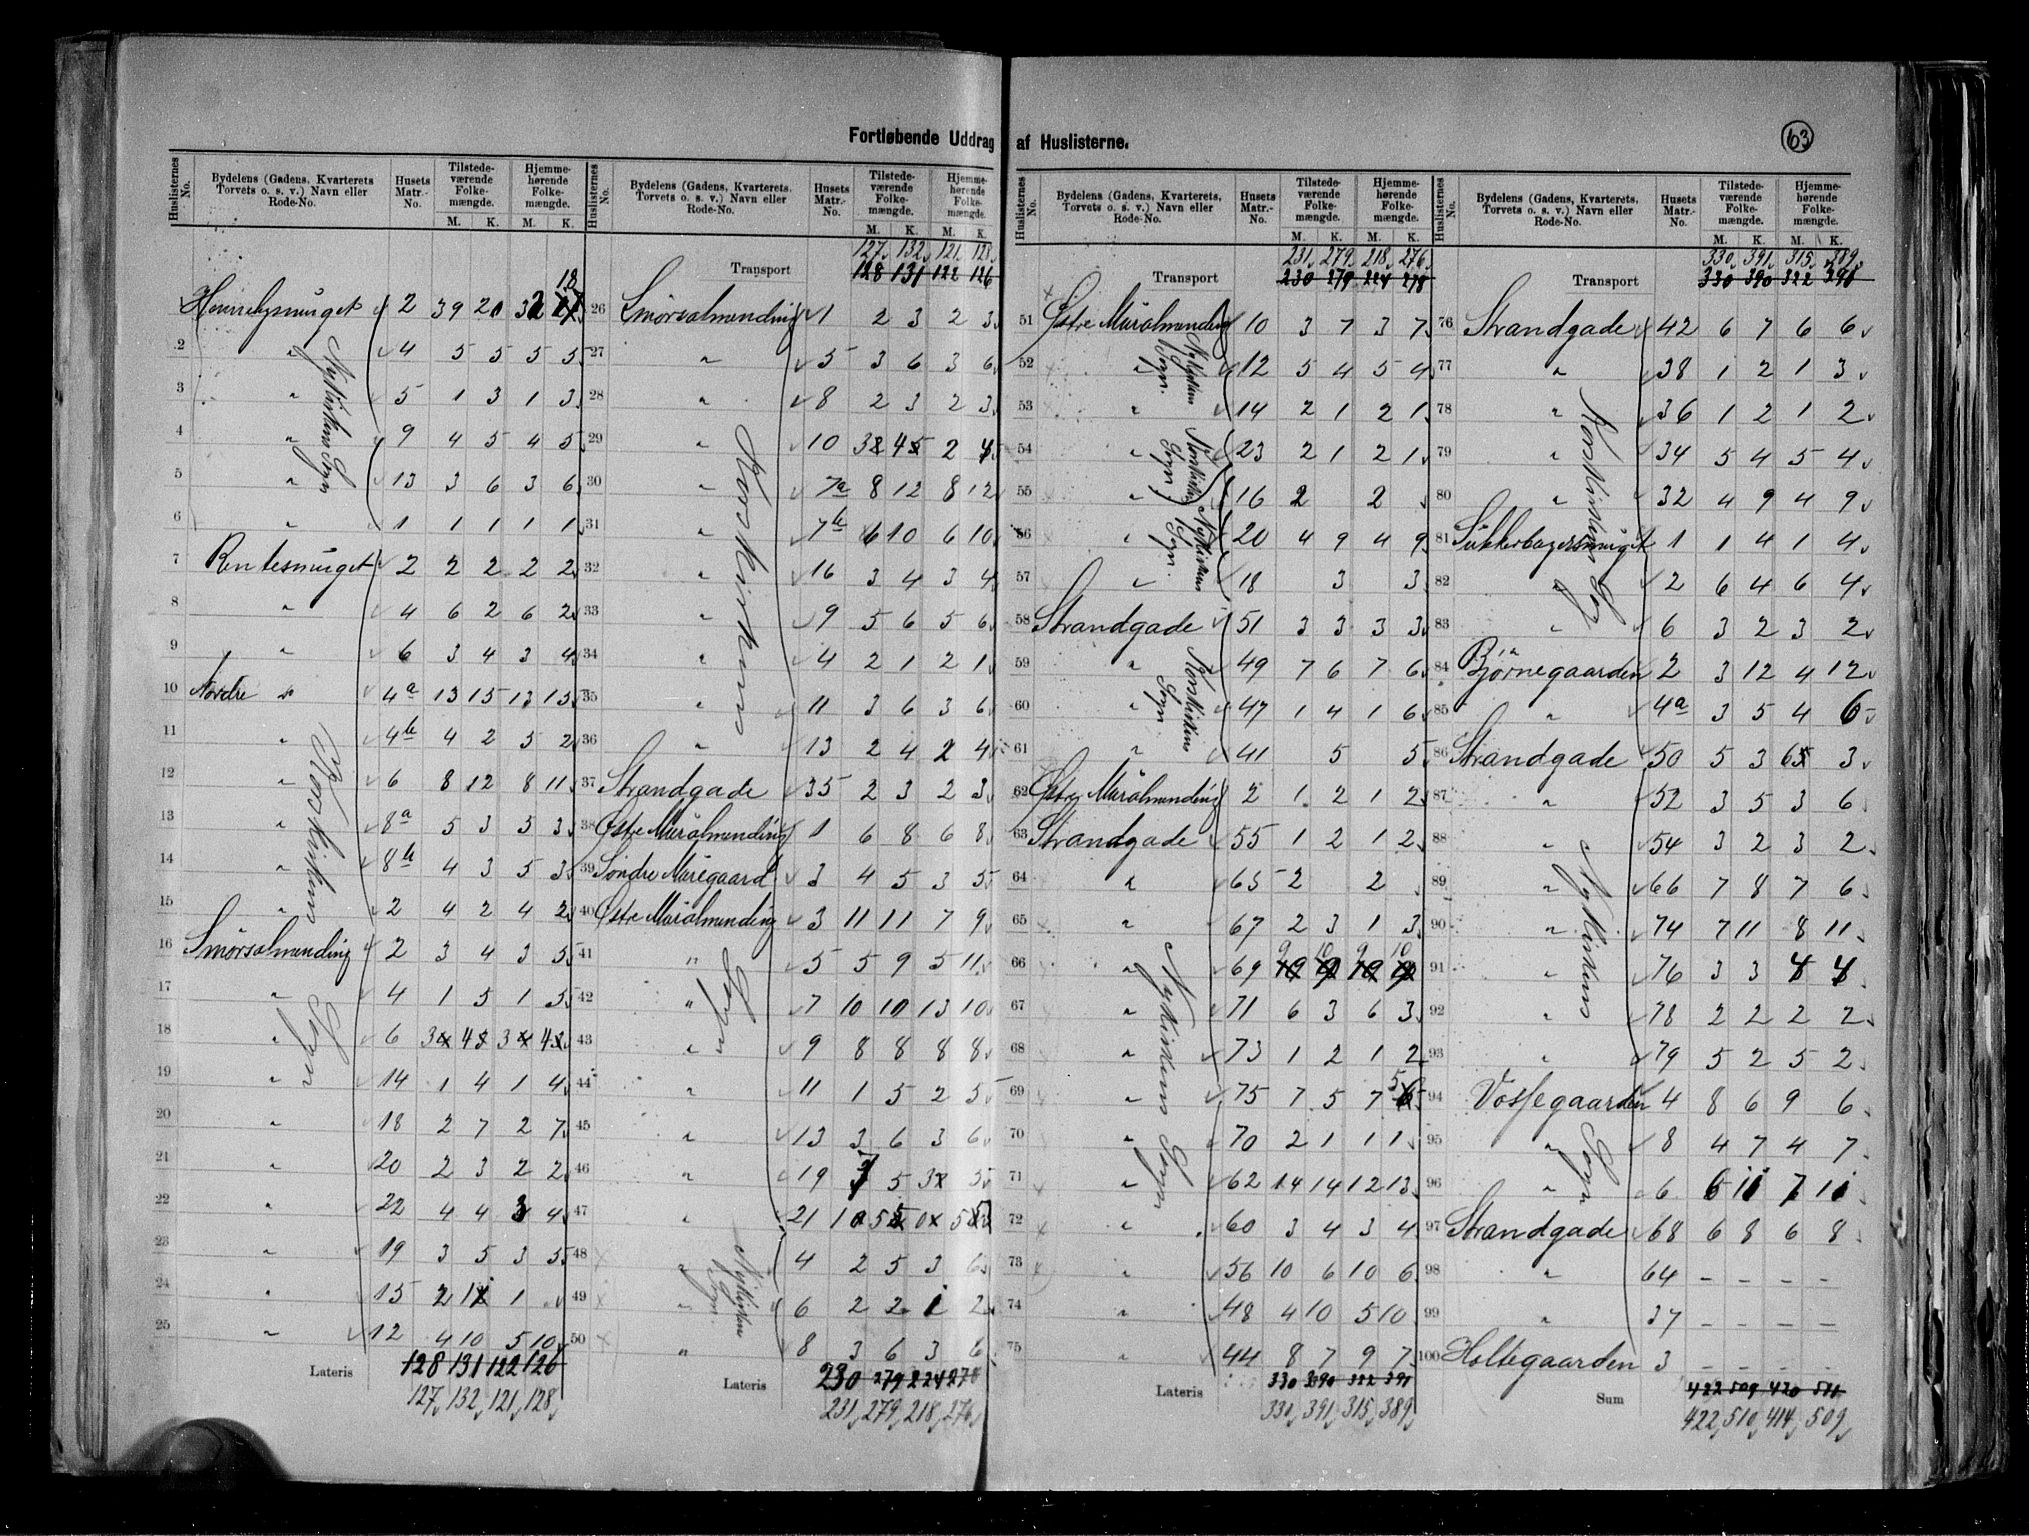 Fortløbende Uddrag af Huslisterne.
63
Huslisternes No. Bydelens (Gadens, Kvarterets Torvets o. s. v.) Navn eller Rode-No. Husets Matr.-No. Tilstedeværende Folkemængde. M. K. Hjemmehørende Folkemængde. M. K.
2 39 20 32 18
2 " 4 5 5 5 5
3 " 5 1 3 1 3
4 " 9 4 5 4 5
5 " 13 3 6 3 6
6 " 1 1 1 1 1
Nykirkens Sogn
7 Rentesmuget 2 2 2 2 2
8 " 4 6 2 6 2
9 " 6 3 4 3 4
10 Nordre do 4a 13 15 13 15
11 " 4b 4 2 5 2
12 " 6 8 12 8 11
13 " 8a 5 3 5 3
14 " 8b 4 3 5 3
15 " 2 4 2 4 2
16 Smørsalmending 2 3 4 3 5
17 " 4 1 5 1 5
18 " 6 3 4 3 4
19 " 14 1 4 1 4
20 " 18 2 7 2 7
21 " 20 2 3 2 2
22 " 22 4 4 3 4
23 " 19 3 5 3 5
24 " 15 2 1 1
25 " 12 4 10 5 10
Korskirkens Sogn
Lateris 128 131 122 126
127 132 121 128
Huslisternes No. Bydelens (Gadens, Kvarterets, Torvets o. s. v.) Navn eller Rode-No. Husets Matr.-No. Tilstedeværende Folkemængde. M. K. Hjemmehørende Folkemængde. M. K.
127 132 121 128
Transport 128 131 122 126
26 Smørsalmending 1 2 3 2 3
27 " 5 3 6 3 6
28 " 8 2 3 2 3
29 " 10 3 4 2 4
30 " 7a 8 12 8 12
31 " 7b 6 10 6 10
32 " 16 3 4 3 4
33 " 9 5 6 5 6
34 " 4 2 1 2 1
35 " 11 3 6 3 6
36 " 13 2 4 2 4
37 Strandgade 35 2 3 2 3
38 Østre Muralmending 1 6 8 6 8
39 Søndre Muregaard 3 4 5 3 5
40 Østre Muralmending 3 11 11 7 9
41 " 5 5 9 5 11
42 " 7 10 10 13 10
43 " 9 8 8 8 8
44 " 11 1 5 2 5
45 " 13 3 6 3 6
46 " 19 5 3 5
47 " 21
Korskirkens Sogn
48 " 4 2 5 3 6
49 " 6 2 2 1 2
50 " 8 3 6 3 6
Nykirkens Sogn.
Lateris 230 279 224 278
231 279 218 276
Huslisternes No. Bydelens (Gadens, Kvarterets, Torvets o. s. v.) Navn eller Rode-No. Husets Matr.-No. Tilstedeværende Folkemængde. M. K. Hjemmehørende Folkemængde. M. K.
231 279 218 276
Transport 230 279 224 278
51 Østre Muralmending 10 3 7 3 7
52 " 12 5 4 5 4
53 " 14 2 1 2 1
Nykirkens Sogn.
54 " 23 2 1 2 1
55 " 16 2 2
56 " 20 4 9 4 9
57 " 18 3 3
Nykirkens Sogn.
58 Strandgade 51 3 3 3 3
59 " 49 7 6 7 6
60 " 47 1 4 1 6
61 " 41 5 5
Korskirkens Sogn.
62 Østre Muralmending 2 1 2 1 2
63 Strandgade 55 1 2 1 2
64 " 65 2 2
65 " 67 2 3 1 3
66 " 69 9 10 9 10
67 " 71 6 3 6 3
68 " 73 1 2 1 2
69 " 75 7 5 7 5
70 " 70 2 1 1 1
71 " 62 14 14 12 13
72 " 60 3 4 3 4
73 " 56 10 6 10 6
74 " 48 4 10 5 10
75 " 44 8 7 9 7
Nykirkens Sogn
Lateris 330 390 322 391
330 391 315 389
Huslisternes No. Bydelens (Gadens, Kvarterets, Torvets o. s. v.) Navn eller Rode-No. Husets Matr.-No. Tilstedeværende Folkemængde. M. K. Hjemmehørende Folkemængde. M. K.
330 391 315 389
Transport 330 390 322 391
76 Strandgade 42 6 7 6 6
77 " 38 1 2 1 3
78 " 36 1 2 1 2
79 " 34 5 4 5 4
80 " 32 4 9 4 9
81 Sukkerbagersmuget 1 1 4 1 4
82 " 2 6 4 6 4
83 " 6 3 2 3 2
Korskirkens Sog
84 Bjørnegaarden 2 3 12 4 12
85 " 4a 3 5 4 6
86 Strandgade 50 5 3 6 3
87 " 52 3 5 3 6
88 " 54 3 2 3 2
89 " 66 7 8 7 6
90 " 74 7 11 8 11
91 " 76 3 3 4 4
92 " 78 2 2 2 2
93 " 79 5 2 5 2
94 Vossegaarden 4 8 6 9 6
95 " 8 4 7 4 7
96 " 6 6 11 7 11
97 Strandgade 68 6 8 6 8
98 " 64 – – – –
99 " 37 – – – –
100 Holtegaarden 3 – – – –
Nykirkens Sogn
Sum 422 509 420 511
422 510 414 509